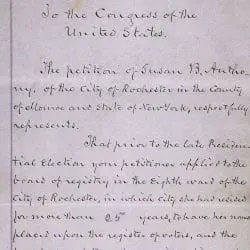 To the Congress of the
United States.
The petition of Susan B. Antho-
ny, of the City of Rochester in the County
of Monroe and State of New York, respectfully
represents:
That prior to the late Presiden-
tial Election your petitioner applied to the
board of registry in the Eighth ward of the
City of Rochester, in which city she has resided
for more than 25 years, to have her name
placed upon the register of voters, and the